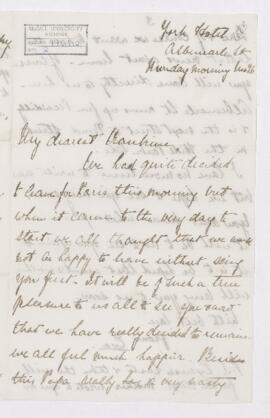 York Hotel
Albemarle St
Monday morning
My dearest
We had quite decided
to leave for Paris this morning but
when it came to the very day to
start we all thought that we were
not so happy to leave without seeing
you first - It will be of such a true
pleasure to us all to see you and
that we have really decided to remain
we all feel much happier. Besides
this Papa really has a very nasty